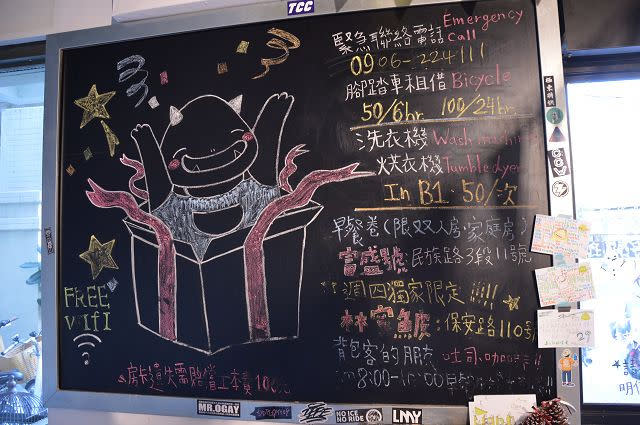 TCC
緊急聯絡電話 Emergency Call
0906-224111
腳踏車租借 Bicycle
50/6hr. 100/24hr.
洗衣機 Wash machine
烘衣機 Tumble dyer
In B1. 50/次
早餐卷(限双人房.家庭房)
富盛號:民族路3段11號
週四獨家限定!!!!
林 魚皮:保安路110號
背包客的服務 吐司.咖啡
8:00-10:00早餐
FREE
WIFI
房卡遺失需賠償工本費100元
MR.OGAY
NO ICE
NO RIDE
LMNY
29